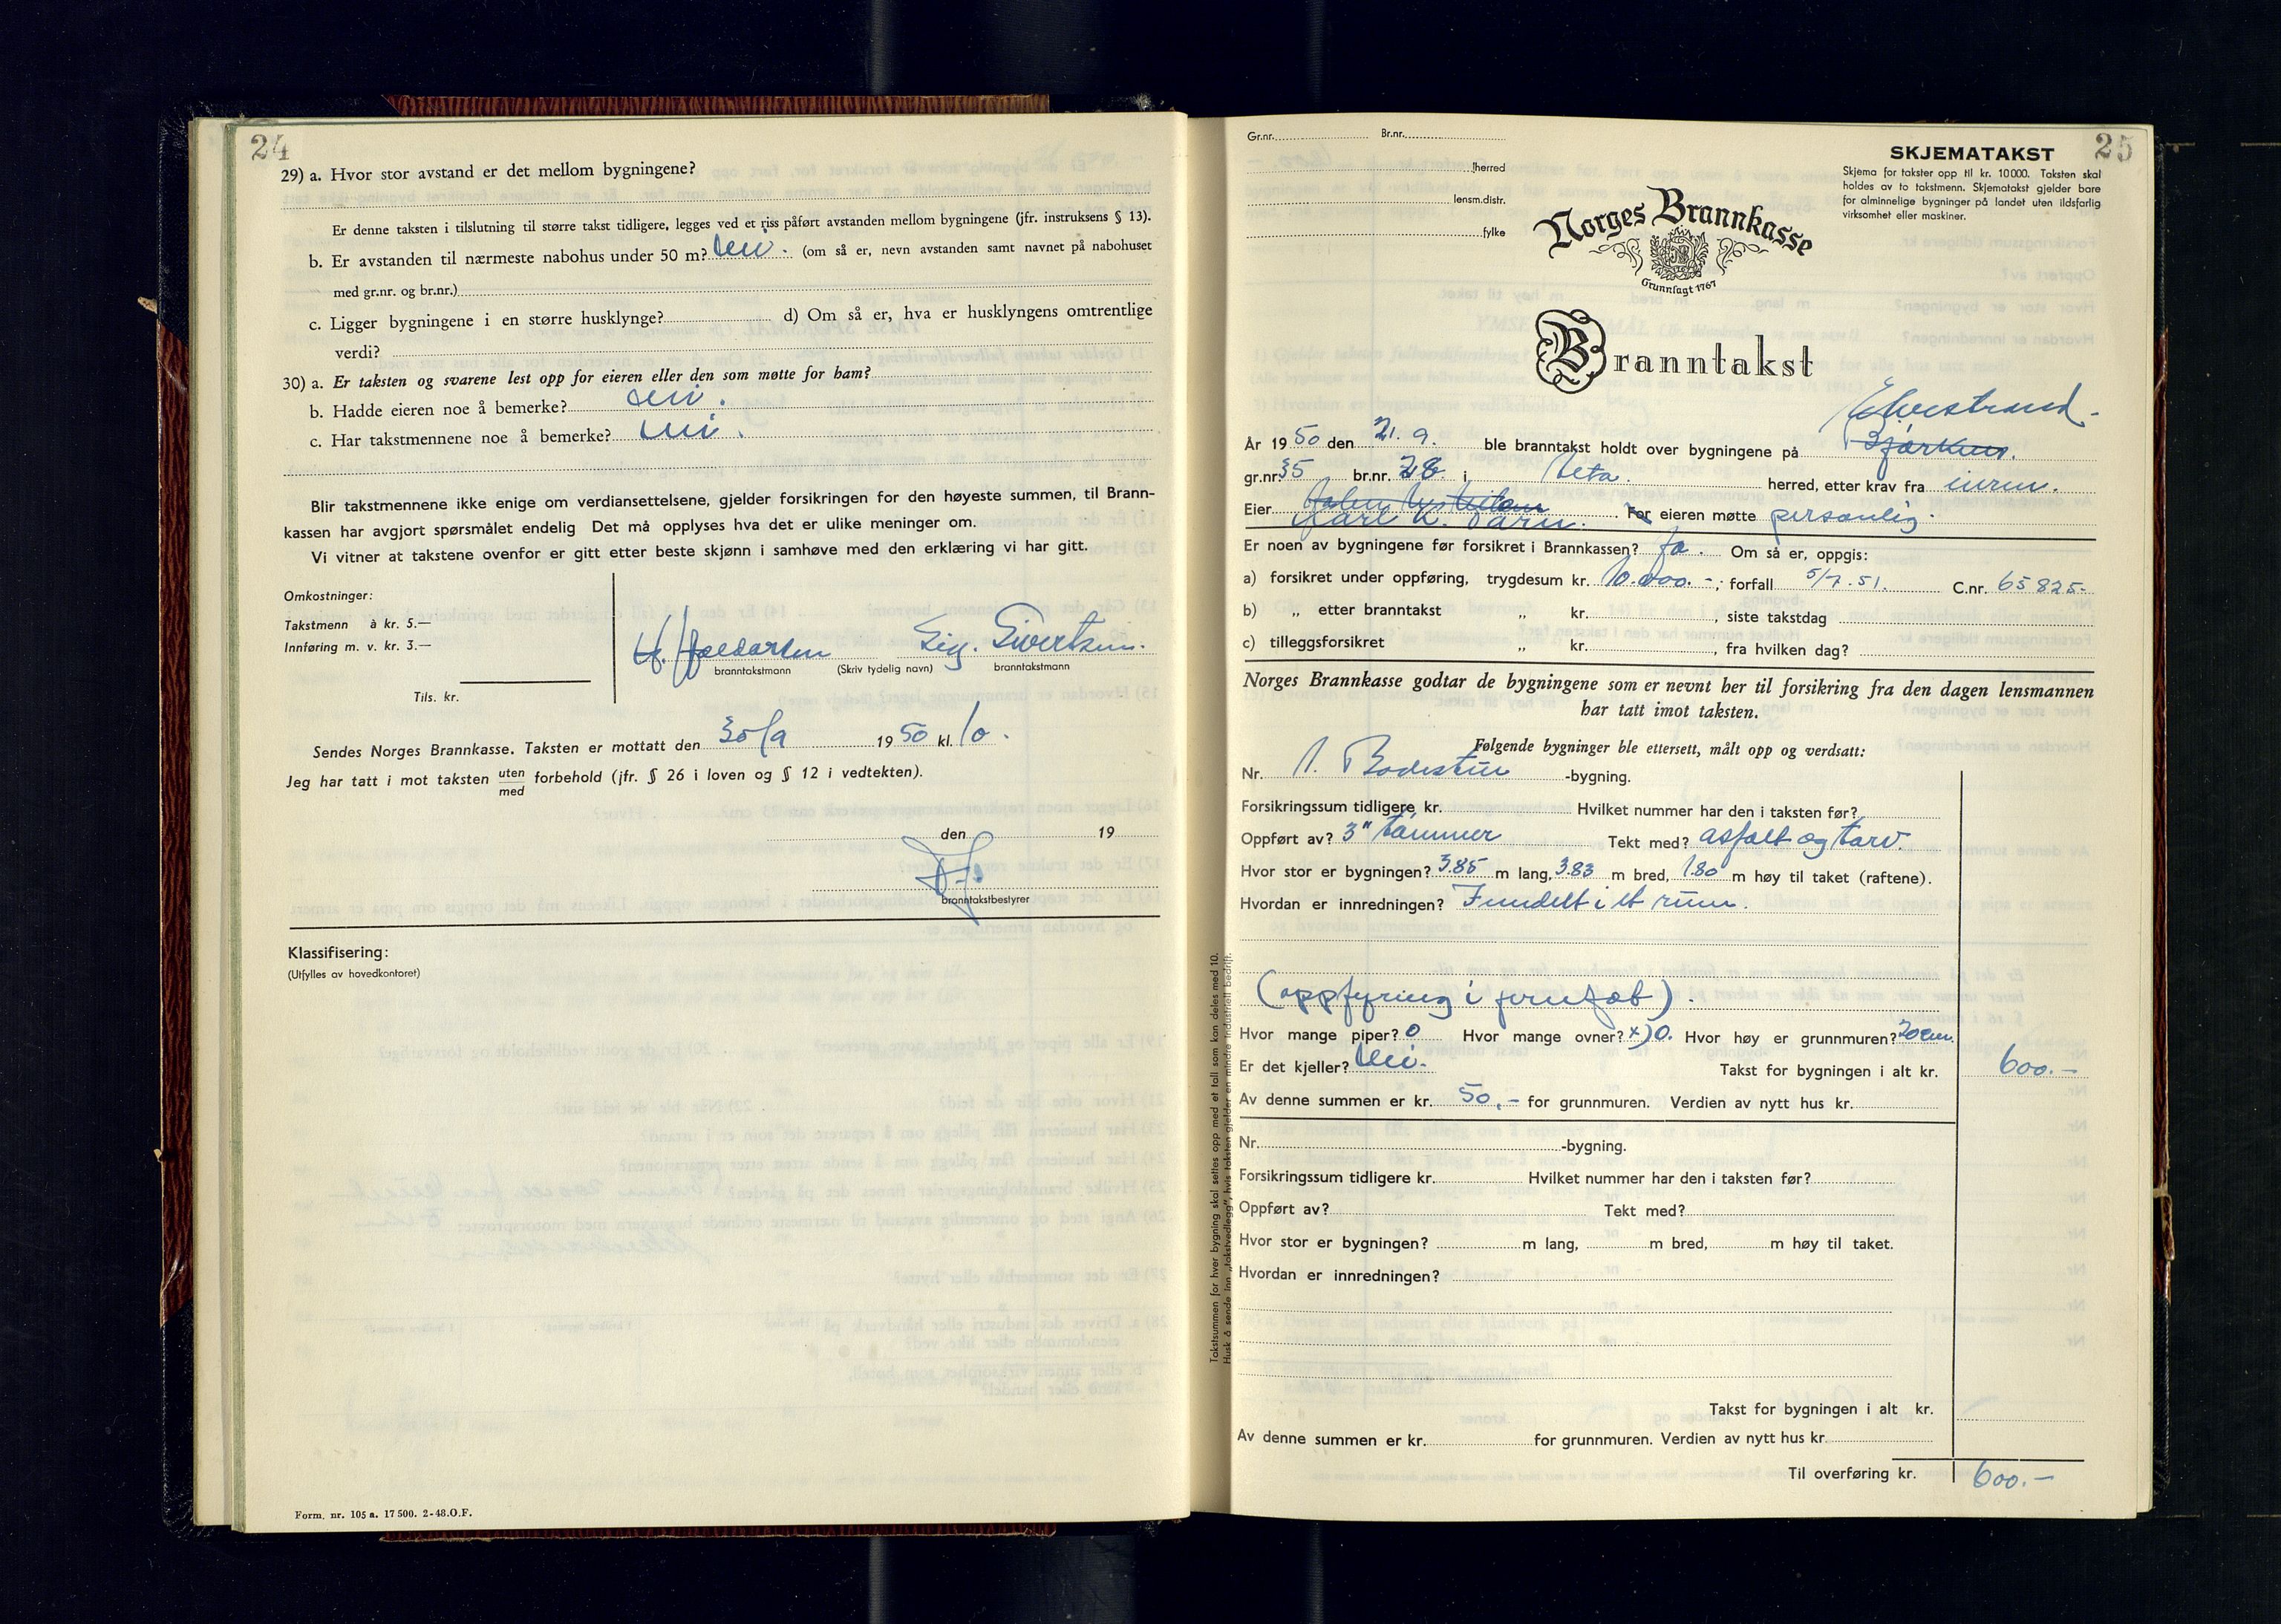 24
29) a. Hvor stor avstand er det mellom bygningene?
Er denne taksten i tilslutning til større takst tidligere, legges ved et riss påført avstanden mellom bygningene (jfr. instruksens § 13).
b. Er avstanden til nærmeste nabohus under 50 m? Nei. (om så er, nevn avstanden samt navnet på nabohuset
med gr.nr. og br.nr.)
c. Ligger bygningene i en større husklynge? d) Om så er, hva er husklyngens omtrentlige
verdi?
30) a. Er taksten og svarene lest opp for eieren eller den som møtte for ham?
b. Hadde eieren noe å bemerke? nei.
c. Har takstmennene noe å bemerke? nei.
Blir takstmennene ikke enige om verdiansettelsene, gjelder forsikringen for den høyeste summen, til Brann-
kassen har avgjort spørsmålet endelig Det må opplyses hva det er ulike meninger om.
Vi vitner at takstene ovenfor er gitt etter beste skjønn i samhøve med den erklæring vi har gitt.
Omkostninger:
Takstmenn à kr. 5.—
Innføring m. v. kr. 3.—
Tils. kr.
Sig. Sivertsen.
branntakstmann (Skriv tydelig navn) branntakstmann
Sendes Norges Brannkasse. Taksten er mottatt den 30/9 1950 kl. 10.
Jeg har tatt i mot taksten uten
med forbehold (jfr. § 26 i loven og § 12 i vedtekten).
den 19
branntakstbestyrer
Klassifisering:
(Utfylles av hovedkontoret)
Form. nr. 105 a. 17 500. 2-48.O.F.
Gr.nr. Br.nr.
herred
lensm.distr.
fylke
SKJEMATAKST 25
Skjema for takster opp til kr. 10 000. Taksten skal
holdes av to takstmenn. Skjematakst gjelder bare
for alminnelige bygninger på landet uten ildsfarlig
virksomhet eller maskiner.
Norges Brannkasse
Grunnlagt 1767
Branntakst
Elvestrand.
År 1950 den 21. 9. ble branntakst holdt over bygningene på Bjørkum.
gr.nr. 35 br.nr. 28 i herred, etter krav fra eieren.
Eier Karl K. For eieren møtte personlig
Er noen av bygningene før forsikret i Brannkassen? Ja. Om så er, oppgis:
a) forsikret under oppføring, trygdesum kr. 10.000.-; forfall 5/7.51. C.nr. 65825.
b) „ etter branntakst „ kr. , siste takstdag
c) tilleggsforsikret „ kr. , fra hvilken dag?
Norges Brannkasse godtar de bygningene som er nevnt her til forsikring fra den dagen lensmannen
har tatt imot taksten.
Følgende bygninger ble ettersett, målt opp og verdsatt:
Nr. 1. Badestue -bygning.
Forsikringssum tidligere kr. Hvilket nummer har den i taksten før?
Oppført av? 3" tømmer Tekt med? asfalt og torv.
Hvor stor er bygningen? 3.85 m lang, 3.83 m bred, 1.80 m høy til taket (raftene).
Hvordan er innredningen? Inndelt i et rum.
(oppfyring i jernfat).
Hvor mange piper? 0 Hvor mange ovner? x) 0. Hvor høy er grunnmuren? 20 cm.
Er det kjeller? Nei. Takst for bygningen i alt kr. 600.-
Av denne summen er kr. 50.- for grunnmuren. Verdien av nytt hus kr.
Nr. -bygning.
Forsikringssum tidligere kr. Hvilket nummer har den i taksten før?
Oppført av? Tekt med?
Hvor stor er bygningen? m lang, m bred, m høy til taket.
Hvordan er innredningen?
Takst for bygningen i alt kr.
Av denne summen er kr. for grunnmuren. Verdien av nytt hus kr.
Til overføring kr. 600.-
Takstsummen for hver bygning skal settes opp med et tall som kan deles med 10.
Husk å sende inn „takstvedlegg", hvis taksten gjelder en mindre industriell bedrift.